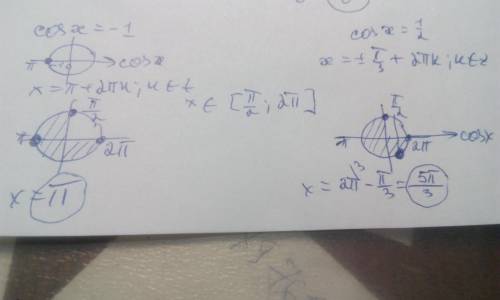 cos x = -1
π -1 0 cosx
x = π + 2πk; k ∈ z
π/2
π 2π
x = π
x ∈ [π/2; 2π]
cos x = 1/2
x = ± π/3 + 2πk; k ∈ z
π/2
π 2π cosx
x = 2π - π/3 = 5π/3